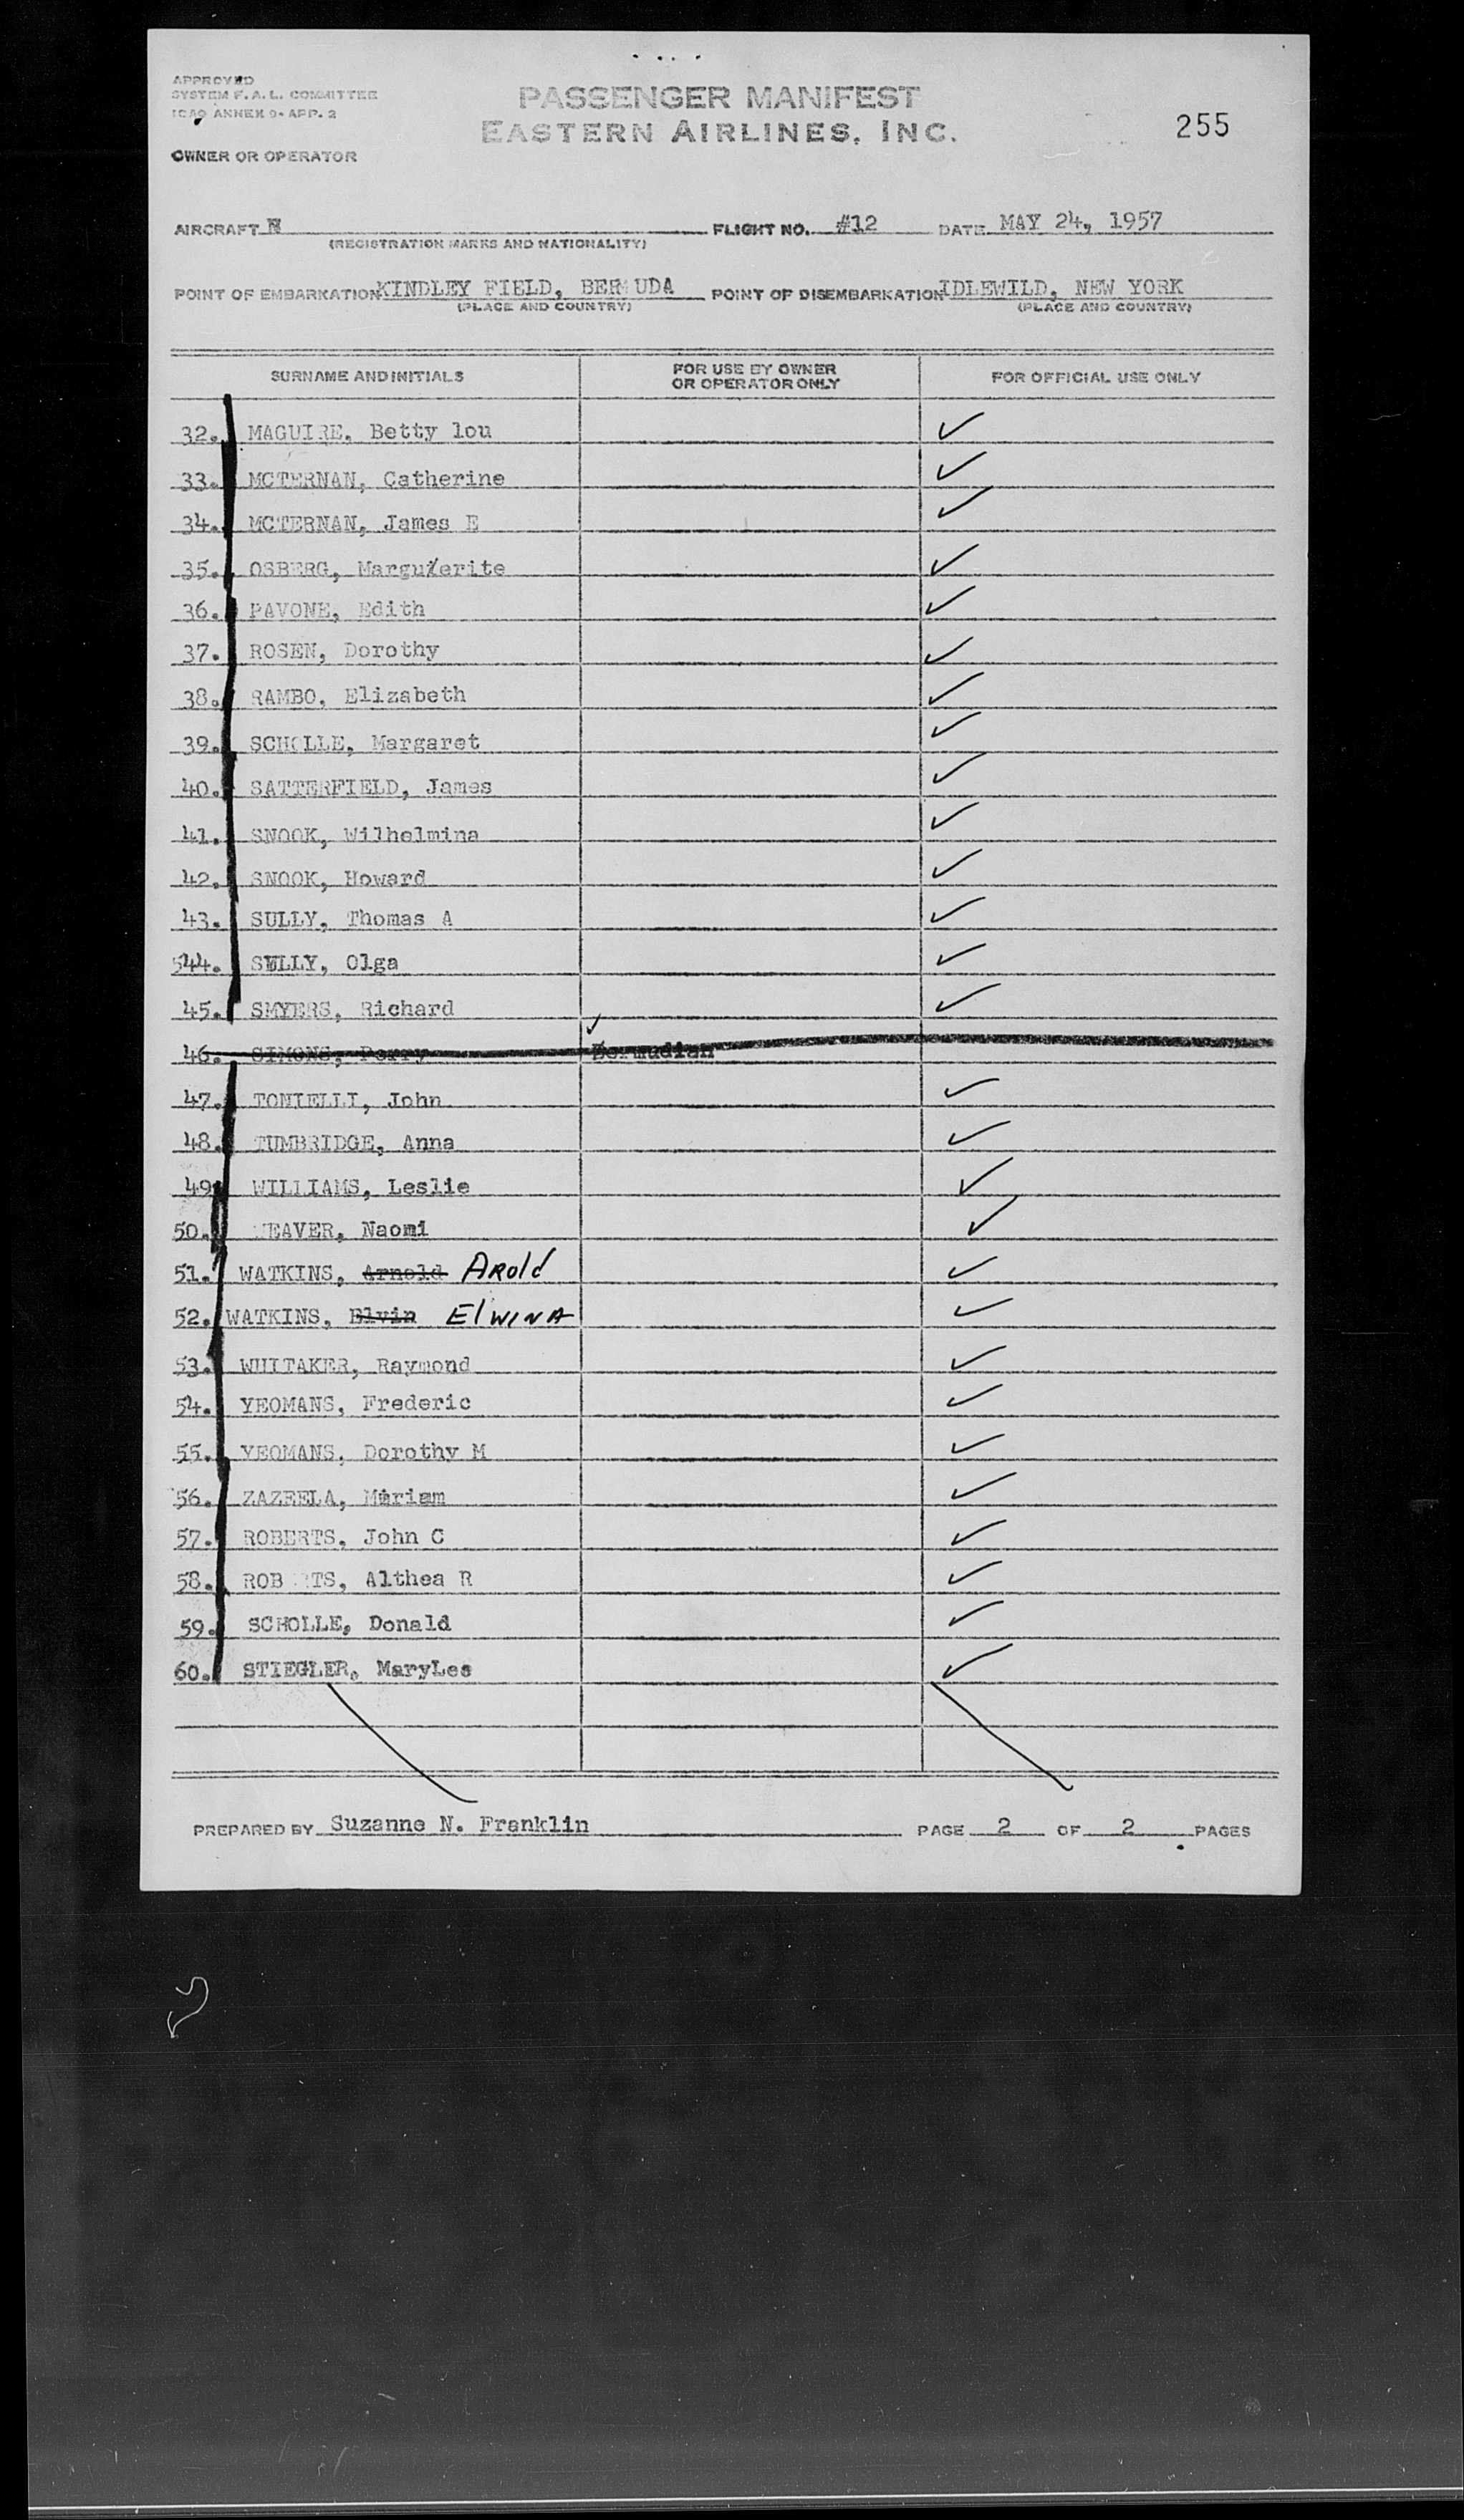 APPROVED
SYSTEM F.A.L. COMMITTEE
ICAO ANNEX 9- APP. 2
PASSENGER MANIFEST
EASTERN AIRLINES, INC.
255
OWNER OR OPERATOR
AIRCRAFT N FLIGHT NO. #12 DATE MAY 24, 1957
(REGISTRATION MARKS AND NATIONALITY)
POINT OF EMBARKATION KINDLEY FIELD, BERMUDA POINT OF DISEMBARKATION IDLEWILD, NEW YORK
(PLACE AND COUNTRY) (PLACE AND COUNTRY)
SURNAME AND INITIALS FOR USE BY OWNER OR OPERATOR ONLY FOR OFFICIAL USE ONLY
32. MAGUIRE, Betty lou ✓
33. MCTERNAN, Catherine ✓
34. MCTERNAN, James E ✓
35. OSBERG, Marguerite ✓
36. PAVONE, Edith ✓
37. ROSEN, Dorothy ✓
38. RAMBO, Elizabeth ✓
39. SCHOLLE, Margaret ✓
40. SATTERFIELD, James ✓
41. SNOOK, Wilhelmina ✓
42. SNOOK, Howard ✓
43. SULLY, Thomas A ✓
44. SULLY, Olga ✓
45. SMYERS, Richard ✓
46. SIMONS, Perry ✓ Bermudian
47. TONIELLI, John ✓
48. TUMBRIDGE, Anna ✓
49. WILLIAMS, Leslie ✓
50. WEAVER, Naomi ✓
51. WATKINS, Arnold Arold ✓
52. WATKINS, Elvin ElwinA ✓
53. WHITAKER, Raymond ✓
54. YEOMANS, Frederic ✓
55. YEOMANS, Dorothy M ✓
56. ZAZEELA, Miriam ✓
57. ROBERTS, John C ✓
58. ROBERTS, Althea R ✓
59. SCHOLLE, Donald ✓
60. STIEGLER, MaryLee ✓
PREPARED BY Suzanne N. Franklin PAGE 2 OF 2 PAGES